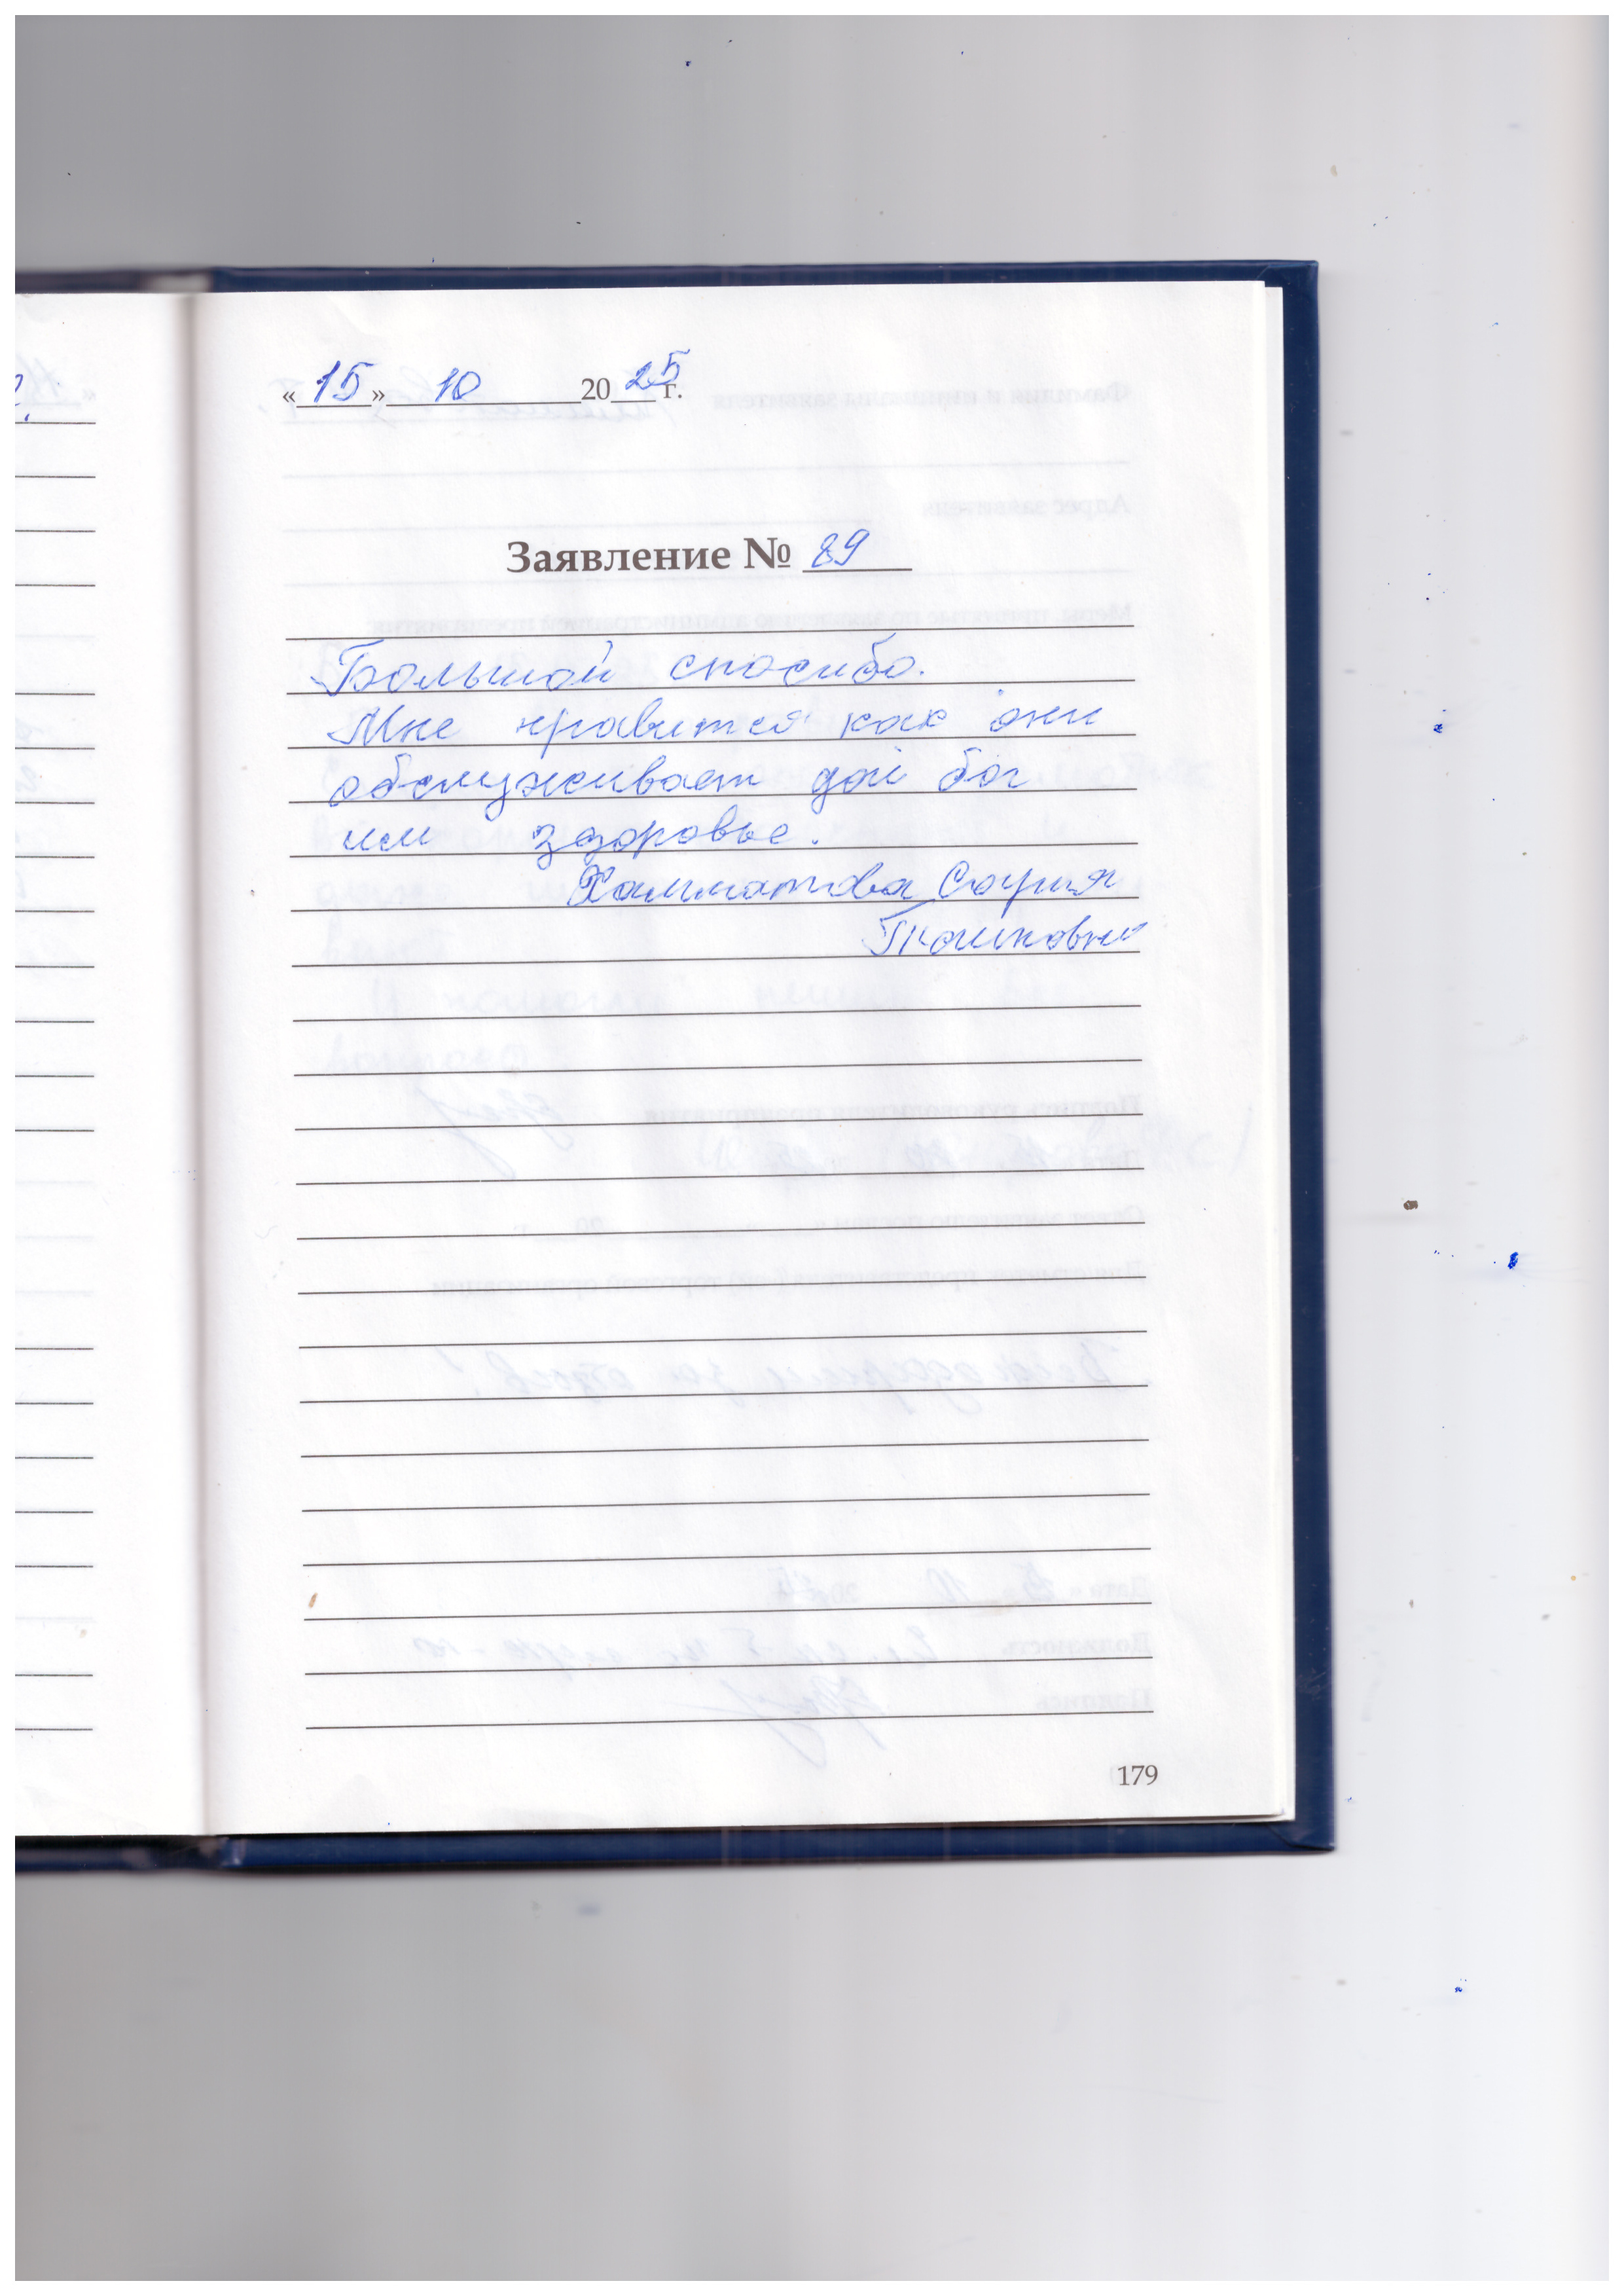 «15» 10 2025 г.
Заявление № 89
Большой спасибо.
Мне нравится как они
обслуживает дай бог
им здоровье.
Хамматова София
179